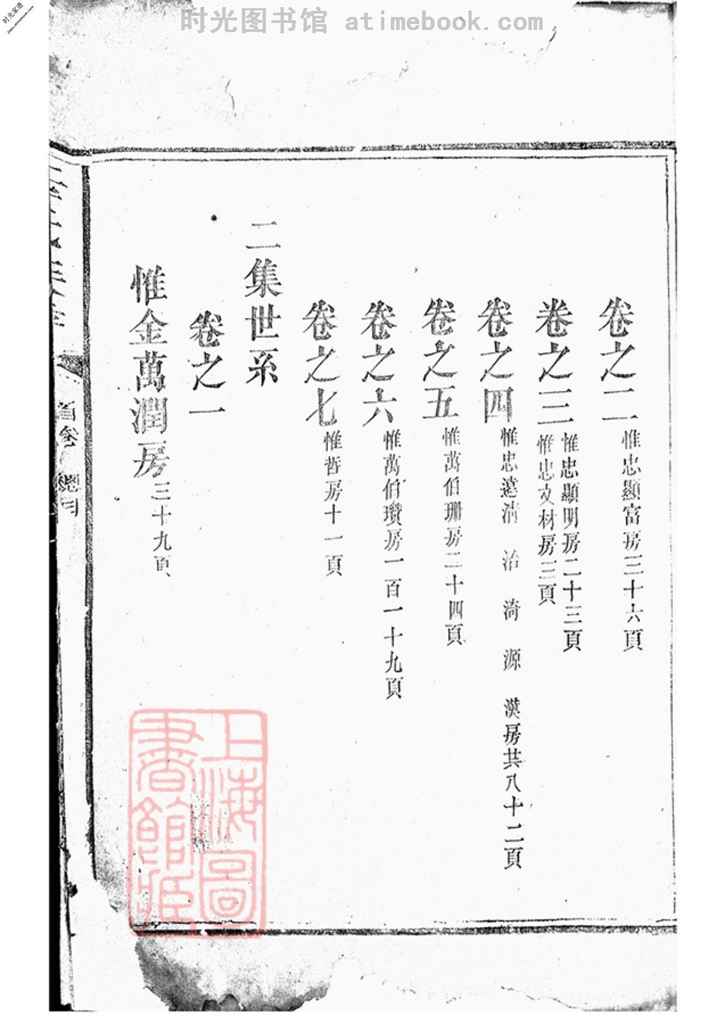 时光图书馆 atimebook.com
卷之二 惟忠顯富房三十六頁
卷之三 惟忠顯明房二十三頁
惟忠文材房三頁
卷之四 惟忠遠清 治 漪 源 漢房共八十二頁
卷之五 惟萬伯珊房二十四頁
卷之六 惟萬伯瓚房一百一十九頁
卷之七 惟哲房十一頁
二集世系
卷之一
惟金萬潤房三十九頁
首卷 總目
上海圖
書館